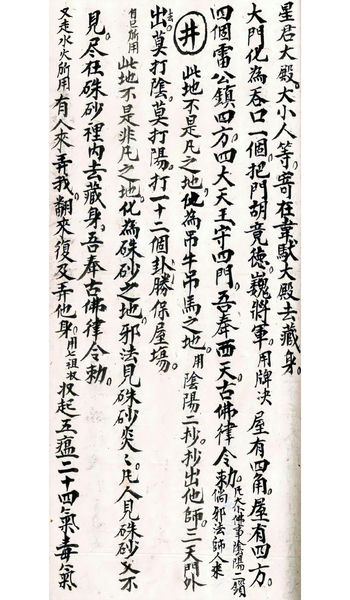 星君大殿。大小人等。寄在韋馱大殿去藏身。
大門化為吞口一個。把門胡竟德。巍將軍。用牌決 屋有四角。屋有四方。
四個雷公鎮四方。四大天王守四門。吾奉西天古佛律令勅。凡大小佛事陰陽二鎖 倘邪法師人來
井 此地不是凡之地。化為吊牛吊馬之地。用陰陽二抄抄出他師。三天門外
出去。莫打陰。莫打陽。打一十二個卦。勝保屋塲。
自己所用 此地不是非凡之地。化為硃砂之地。邪法見硃砂。凡人見硃砂又不
見。尽在硃砂裡內去藏身。吾奉古佛律令勅。
又走水火所用 有人來弄我。翻來復及弄他身。用七祖收 収起五瘟二十四氣毒氣